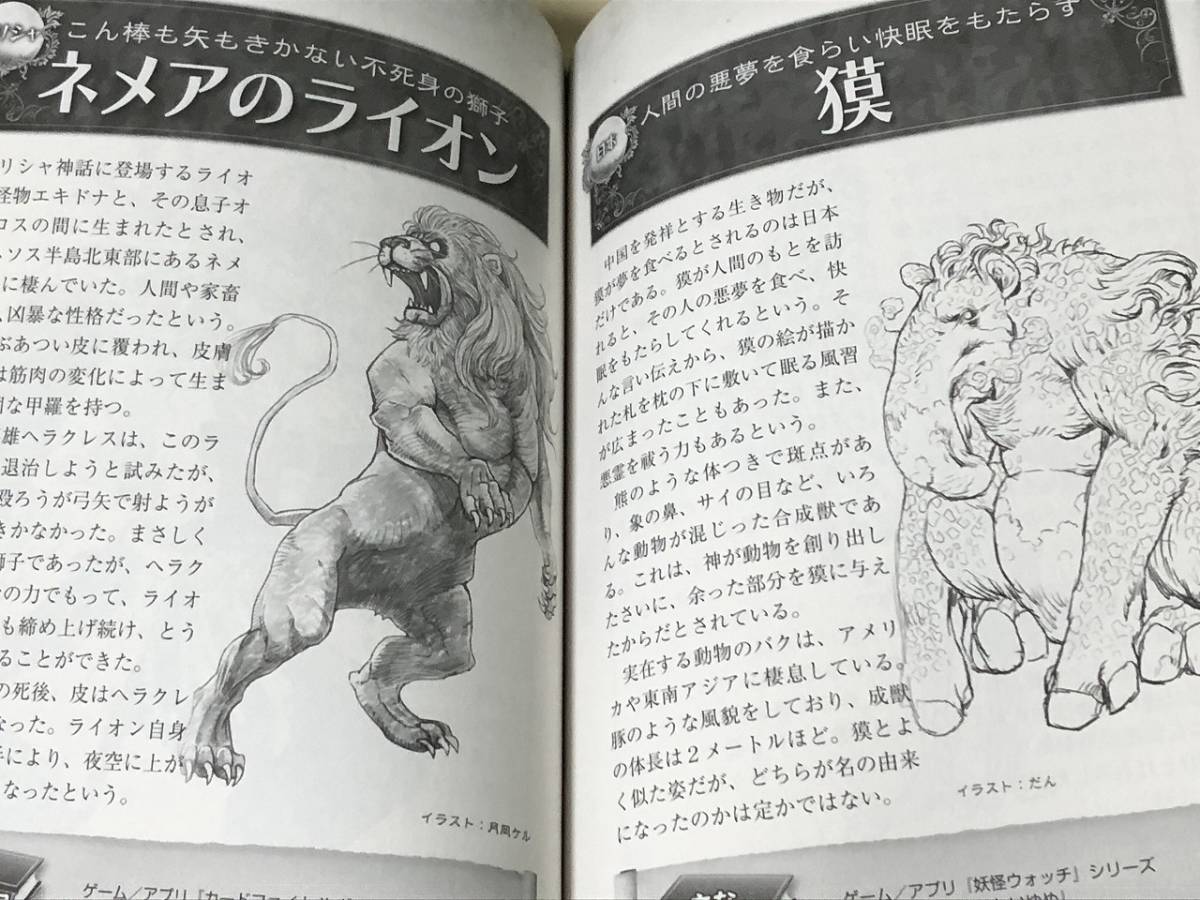 シャ
こん棒も矢もきかない不死身の獅子
ネメアのライオン
リシャ神話に登場するライオ
怪物エキドナと、その息子オ
ロスの間に生まれたとされ、
ソス半島北東部にあるネメ
に棲んでいた。人間や家畜
、凶暴な性格だったという。
ぶあつい皮に覆われ、皮膚
は筋肉の変化によって生ま
な甲羅を持つ。
雄ヘラクレスは、このラ
退治しようと試みたが、
殴ろうが弓矢で射ようが
きかなかった。まさしく
獅子であったが、ヘラク
の力でもって、ライオ
も締め上げ続け、とう
ることができた。
の死後、皮はヘラクレ
なった。ライオン自身
手により、夜空に上が
なったという。
イラスト：月岡ケル
ゲーム／アプリ『カードファイト
日本
人間の悪夢を食らい快眠をもたらす
獏
中国を発祥とする生き物だが、
獏が夢を食べるとされるのは日本
だけである。獏が人間のもとを訪
れると、その人の悪夢を食べ、快
眠をもたらしてくれるという。そ
んな言い伝えから、獏の絵が描か
れた札を枕の下に敷いて眠る風習
が広まったこともあった。また、
悪霊を祓う力もあるという。
熊のような体つきで斑点があ
り、象の鼻、サイの目など、いろ
んな動物が混じった合成獣であ
る。これは、神が動物を創り出し
たさいに、余った部分を獏に与え
たからだとされている。
実在する動物のバクは、アメリ
カや東南アジアに棲息している。
豚のような風貌をしており、成獣
の体長は２メートルほど。獏とよ
く似た姿だが、どちらが名の由来
になったのかは定かではない。
イラスト：だん
ゲーム／アプリ『妖怪ウォッチ』シリーズ